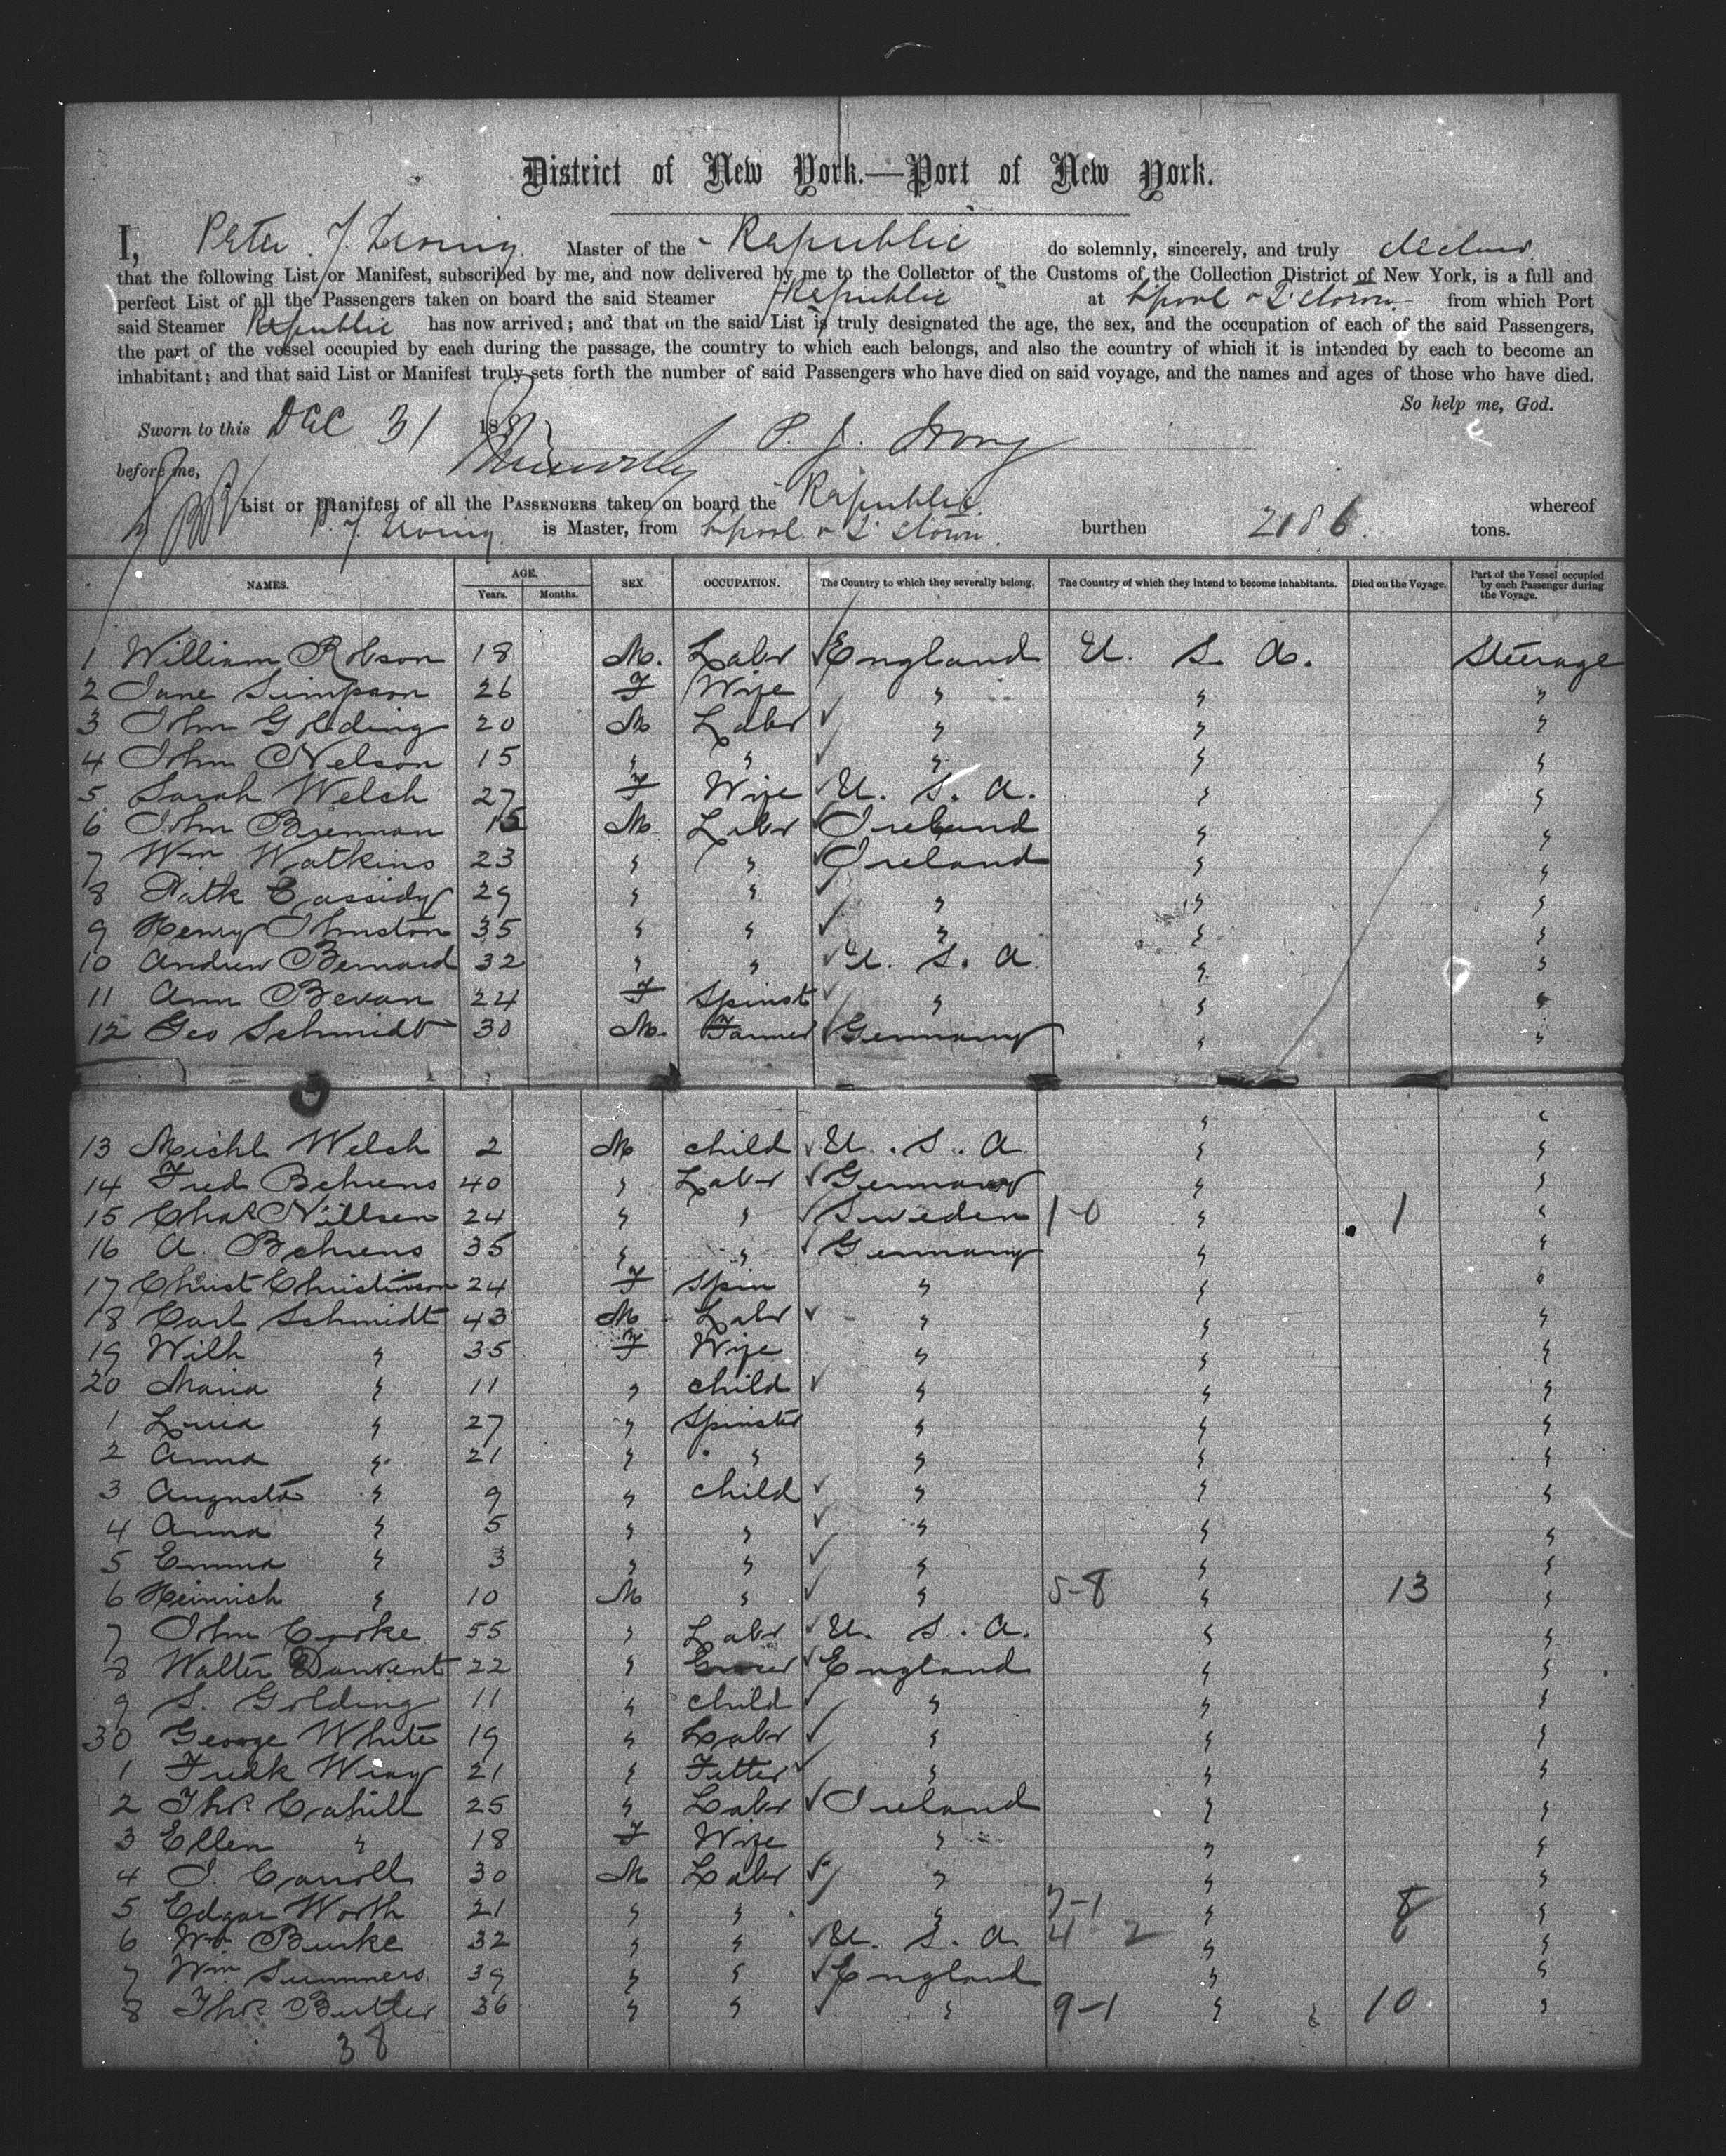 District of New York.—Port of New York.
I, Peter J. Irving Master of the Republic do solemnly, sincerely, and truly declare
that the following List or Manifest, subscribed by me, and now delivered by me to the Collector of the Customs of the Collection District of New York, is a full and
perfect List of all the Passengers taken on board the said Steamer Republic at L'pool & Q'town from which Port
said Steamer Republic has now arrived; and that on the said List is truly designated the age, the sex, and the occupation of each of the said Passengers,
the part of the vessel occupied by each during the passage, the country to which each belongs, and also the country of which it is intended by each to become an
inhabitant; and that said List or Manifest truly sets forth the number of said Passengers who have died on said voyage, and the names and ages of those who have died.
So help me, God.
Sworn to this Dec 31 188 P. J. Irving
before me,
List or Manifest of all the PASSENGERS taken on board the Republic whereof
P. J. Irving is Master, from L'pool & Q'town burthen 2186 tons.
NAMES. AGE. Years. Months. SEX. OCCUPATION. The Country to which they severally belong. The Country of which they intend to become inhabitants. Died on the Voyage. Part of the Vessel occupied by each Passenger during the Voyage.
1 William Robson 18 M. Labr England U. S. A. Steerage
2 Jane Simpson 26 F Wife " " "
3 John Golding 20 M Labr " " "
4 John Nelson 15 " " " " "
5 Sarah Welch 27 F Wife U. S. A. " "
6 John Brennan 15 M Labr Ireland " "
7 Wm Watkins 23 " " Ireland " "
8 Patk Cassidy 29 " " " " "
9 Henry Johnston 35 " " " " "
10 Andrew Bernard 32 " " U. S. A " "
11 Ann Bevan 24 F Spinst " " "
12 Geo Schmidt 30 M. Farmer Germany " "
" "
13 Michl Welsh 2 M child U. S. A " "
14 Fred Behrens 40 " Labr Germany " "
15 Chas Nillsen 24 " " Sweden 1-0 " 1 "
16 A. Behrens 35 " " Germany " "
17 Christ Christinson 24 F Spin " " "
18 Carl Schmidt 43 M Labr " " "
19 Wilh " 35 F Wife " " "
20 Maria " 11 " child " " "
1 " 27 " Spinster " " "
2 Anna " 21 " " " " "
3 Augusta " 9 " child " " "
4 Anna " 5 " " " " "
5 Emma " 3 " " " " "
6 Heinrich " 10 M " " 5-8 " 13 "
7 John Corke 55 " Labr U. S. A. " "
8 Walter 22 " England " "
9 S. Golding 11 " child " " "
30 George White 19 " Labr " " "
1 Fredk Wray 21 " Fitter " " "
2 Thos Cahill 25 " Labr Ireland " "
3 Ellen " 18 F Wife " " "
4 J. Carroll 30 M Labr " " "
5 Edgar Worth 21 " " " 7-1 " 8 "
6 Wm Burke 32 " " U. S. A. 4-2 " "
7 Wm Summers 39 " " England " "
8 Thos Butler 36 " " " 9-1 " 10 "
38